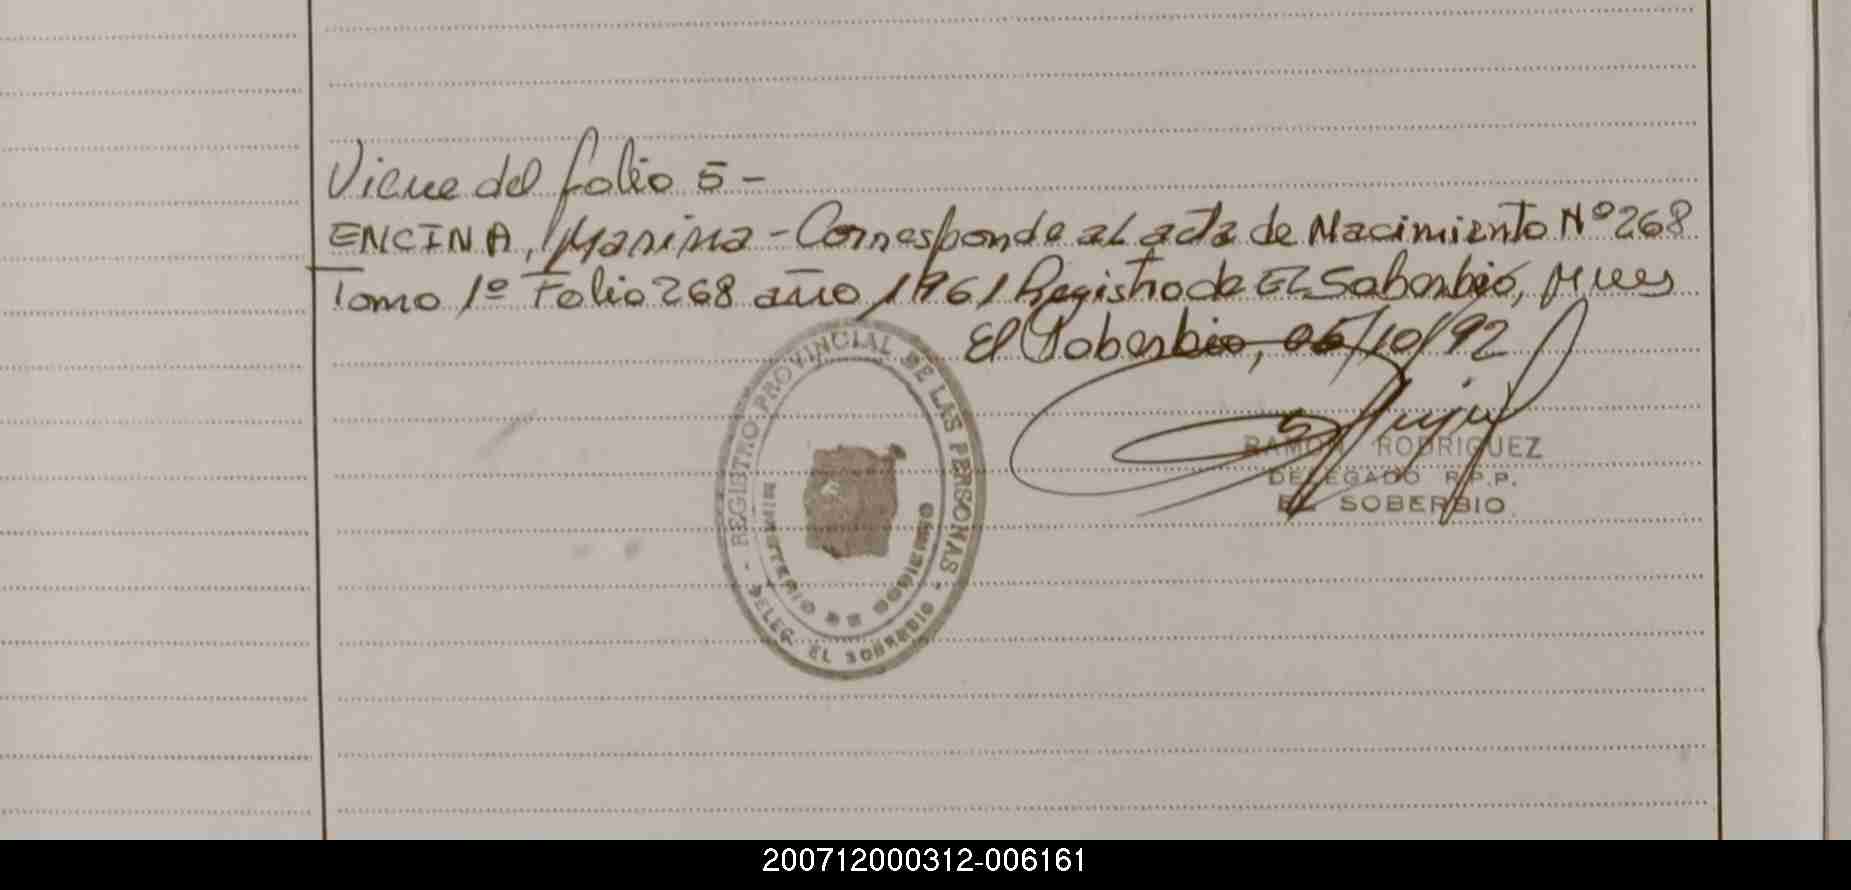 Viene del folio 5 -
ENCINA, Marina - Corresponde al acta de Nacimiento Nº 268
Tomo 1º Folio 268 año 1961 Registro de El Soberbio, Mnes
El Soberbio, 06/10/92
REGISTRO PROVINCIAL DE LAS PERSONAS
MINISTERIO DE GOBIERNO
- DELEG. EL SOBERBIO -
RAMON RODRIGUEZ
DELEGADO R.P.P.
EL SOBERBIO
200712000312-006161